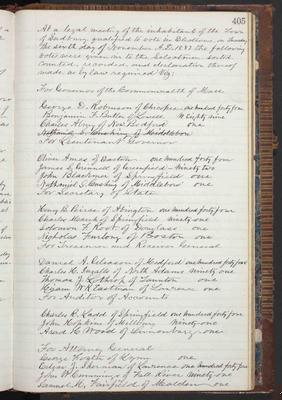 405
At a legal meeting of the inhabitants of the Town
of Sudbury, qualified to vote in Elections, on Tuesday
The sixth day of November A.D. 1883 the following
votes were given in to the Selectmen sorted
counted, recorded, and declaration thereof
made as by law required Viz;
For Governor of the Commonwealth of Mass.
George D. Robinson of Chicopee one hundred forty four
Benjamin F. Butler of Lowell Ninety nine
Charles Almy of New Bedford one
Nathaniel S. Cushing of Middleboro
For Lieutenant Governor
Oliver Ames of Easton one hundred forty four
James S. Grinnell of Greenfield ninety two
John Blackmer of Springfield one
Nathaniel S. Cushing of Middleboro one
For Secretary of State
Henry B. Peirce of Abington one hundred forty four
Charles Marsh of Springfield ninety one
Solomon F. Root of Douglass one
Nicholas Furlong of Boston one
For Treasurer and Receiver General
Daniel A. Gleason of Medford one hundred forty four
Charles H. Ingalls of North Adams ninety one
Thomas J. Lothrop of Taunton one
Hiram W. Eastman of Lawrence one
For Auditor of Accounts
Charles R. Ladd of Springfield one hundred forty four
John Hopkins of Millbury Ninety-one
A. H. Wood of Lunenburg, one
For Attorney General
George Foster of Lynn one
Edgar J. Sherman of Lawrence one hundred forty four
John W. Cummings of Fall River Ninety one
Samuel M. Fairfield of Malden one